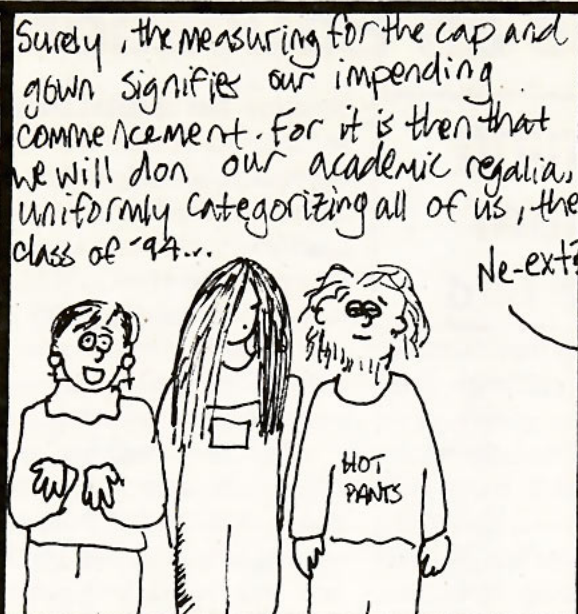 Surely, the measuring for the cap and
gown signifies our impending
commencement. For it is then that
we will don our academic regalia,
uniformly categorizing all of us, the
class of '94...
Ne-ext?
HOT
PANTS